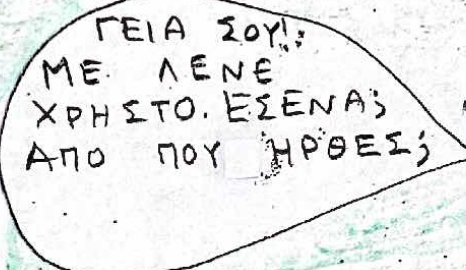 ΓΕΙΑ ΣΟΥ!
ΜΕ ΛΕΝΕ
ΧΡΗΣΤΟ. ΕΣΕΝΑ;
ΑΠΟ ΠΟΥ ΗΡΘΕΣ;